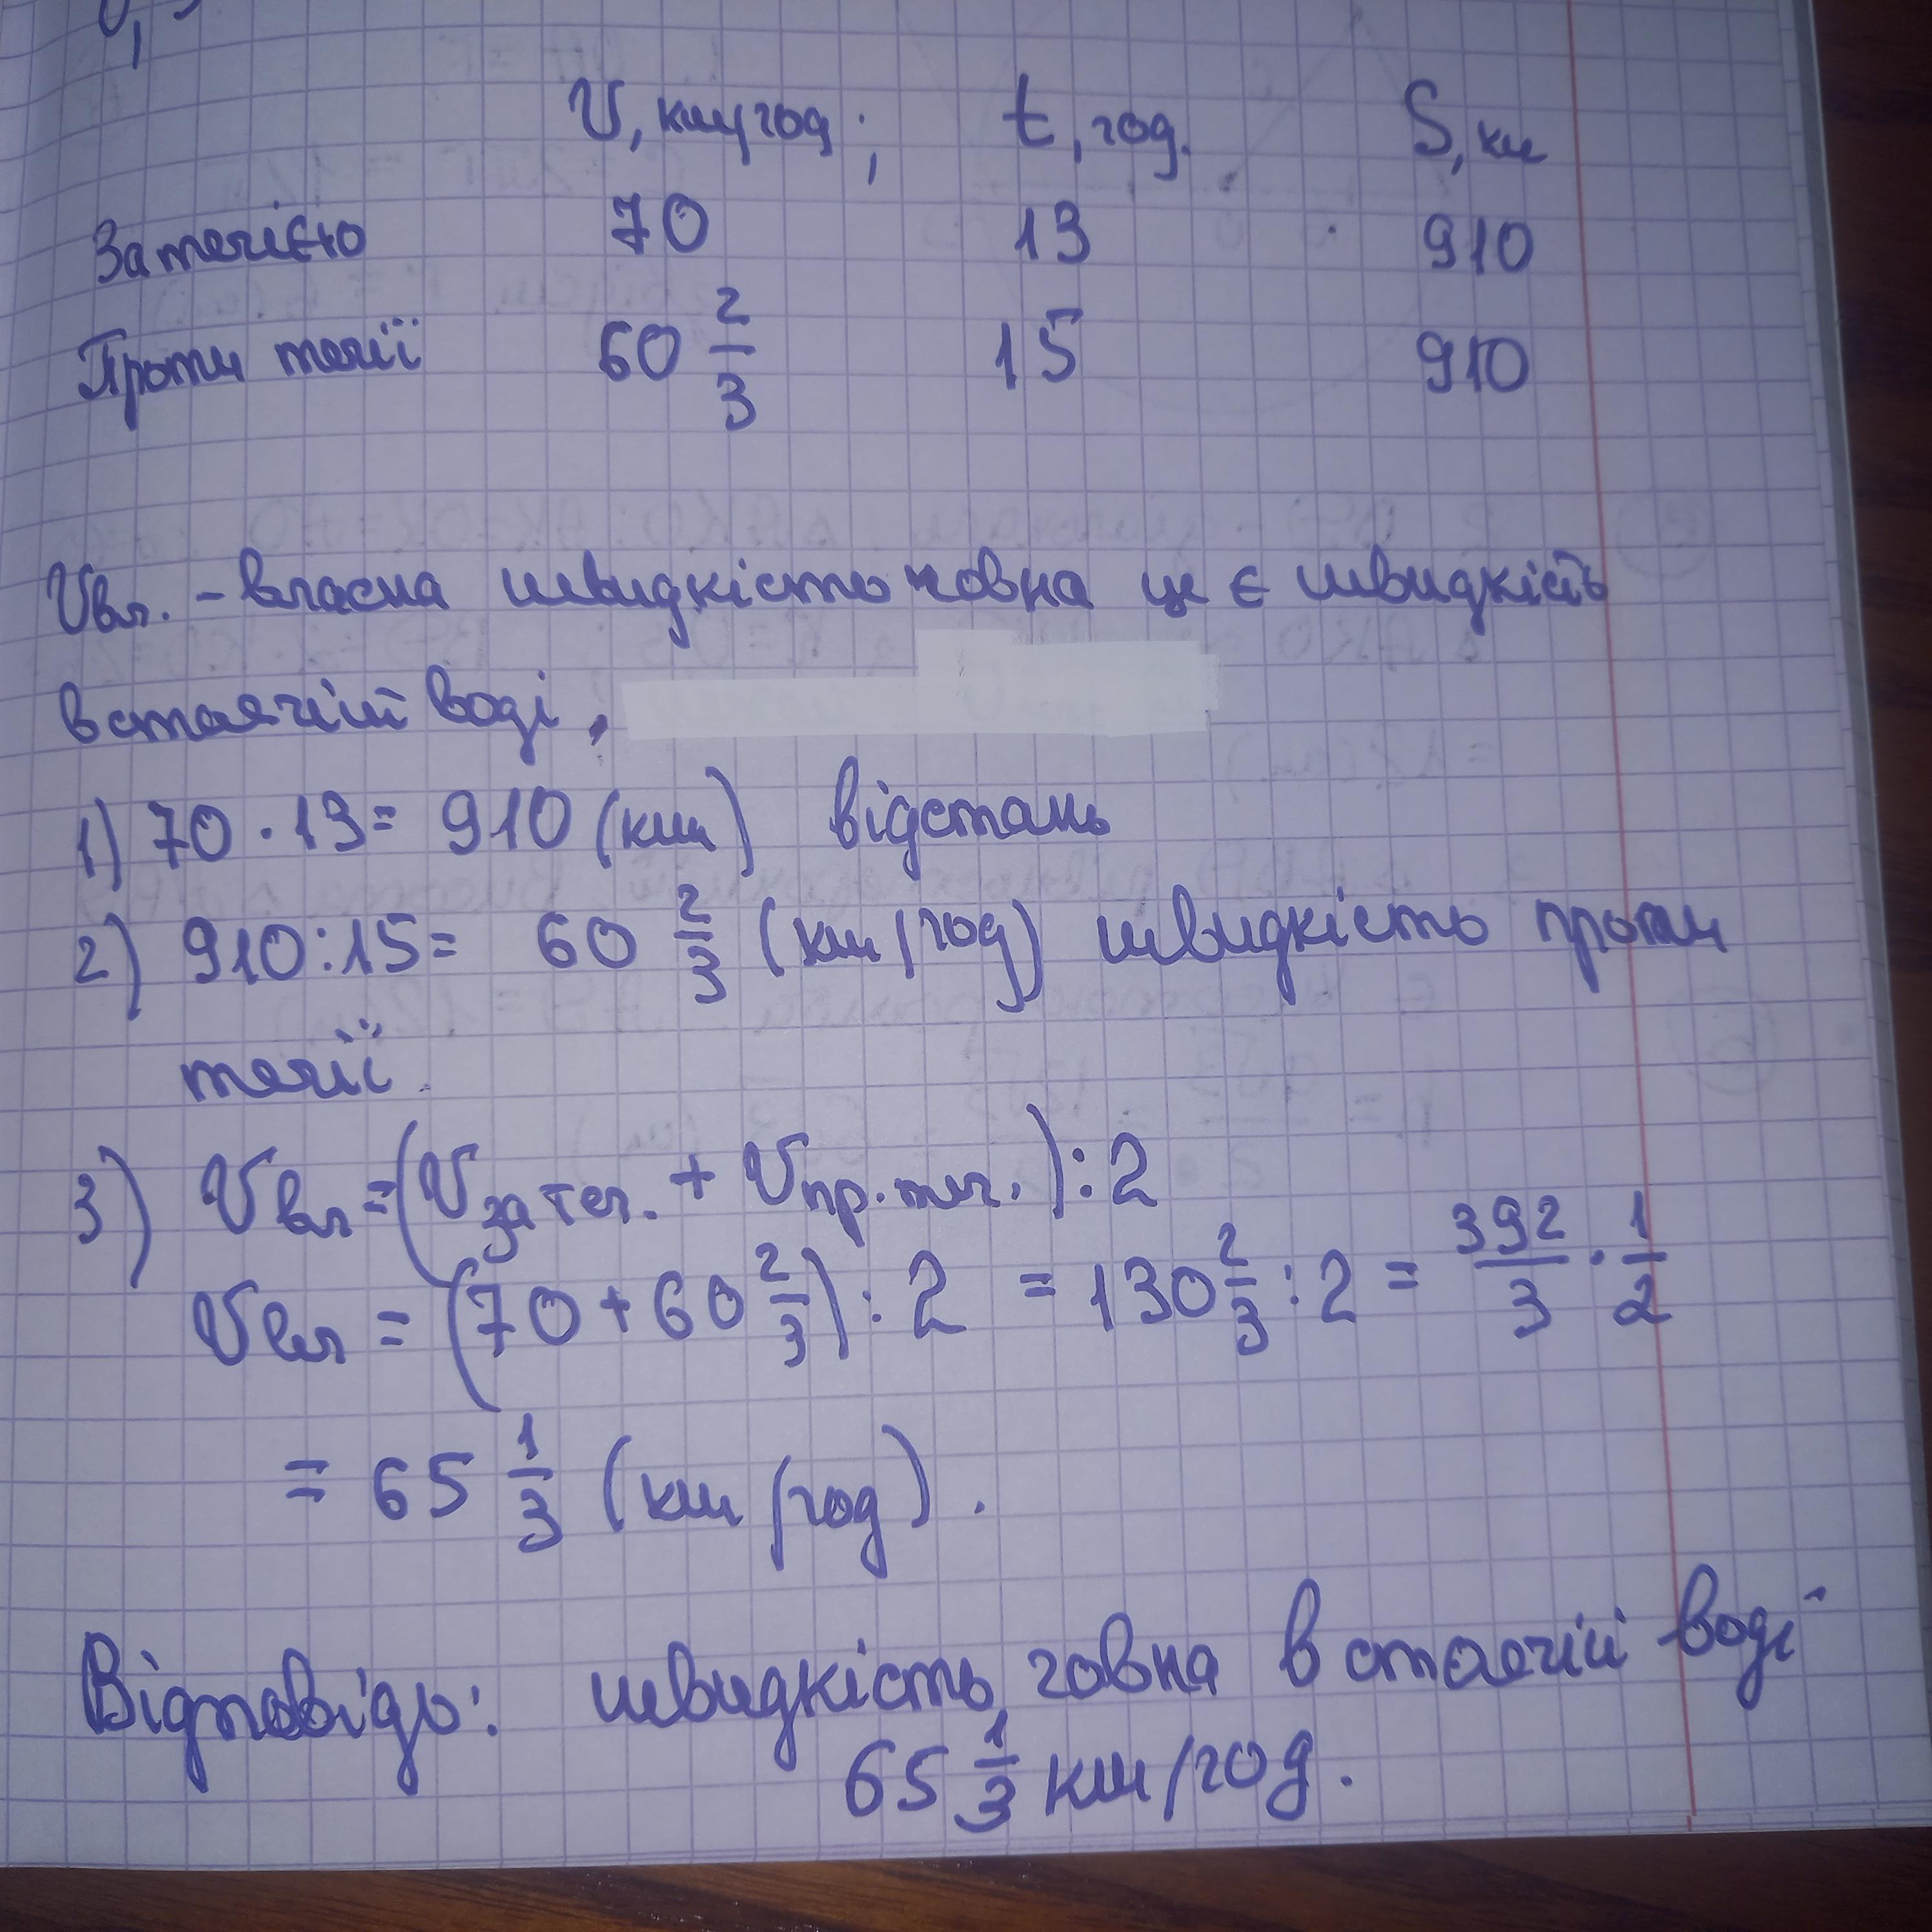 V, км/год; t, год. S, км
За течією 70 13 910
Проти течії 60 2/3 15 910
Vвл. - власна швидкість човна це є швидкість
в стоячій воді,
1) 70 · 13 = 910 (км) відстань
2) 910 : 15 = 60 2/3 (км/год) швидкість проти
течії.
3) Vвл = (Vза теч. + Vпр. теч.) : 2
Vвл = (70 + 60 2/3) : 2 = 130 2/3 : 2 = 392/3 · 1/2
= 65 1/3 (км/год).
Відповідь: швидкість човна в стоячій воді
65 1/3 км/год.